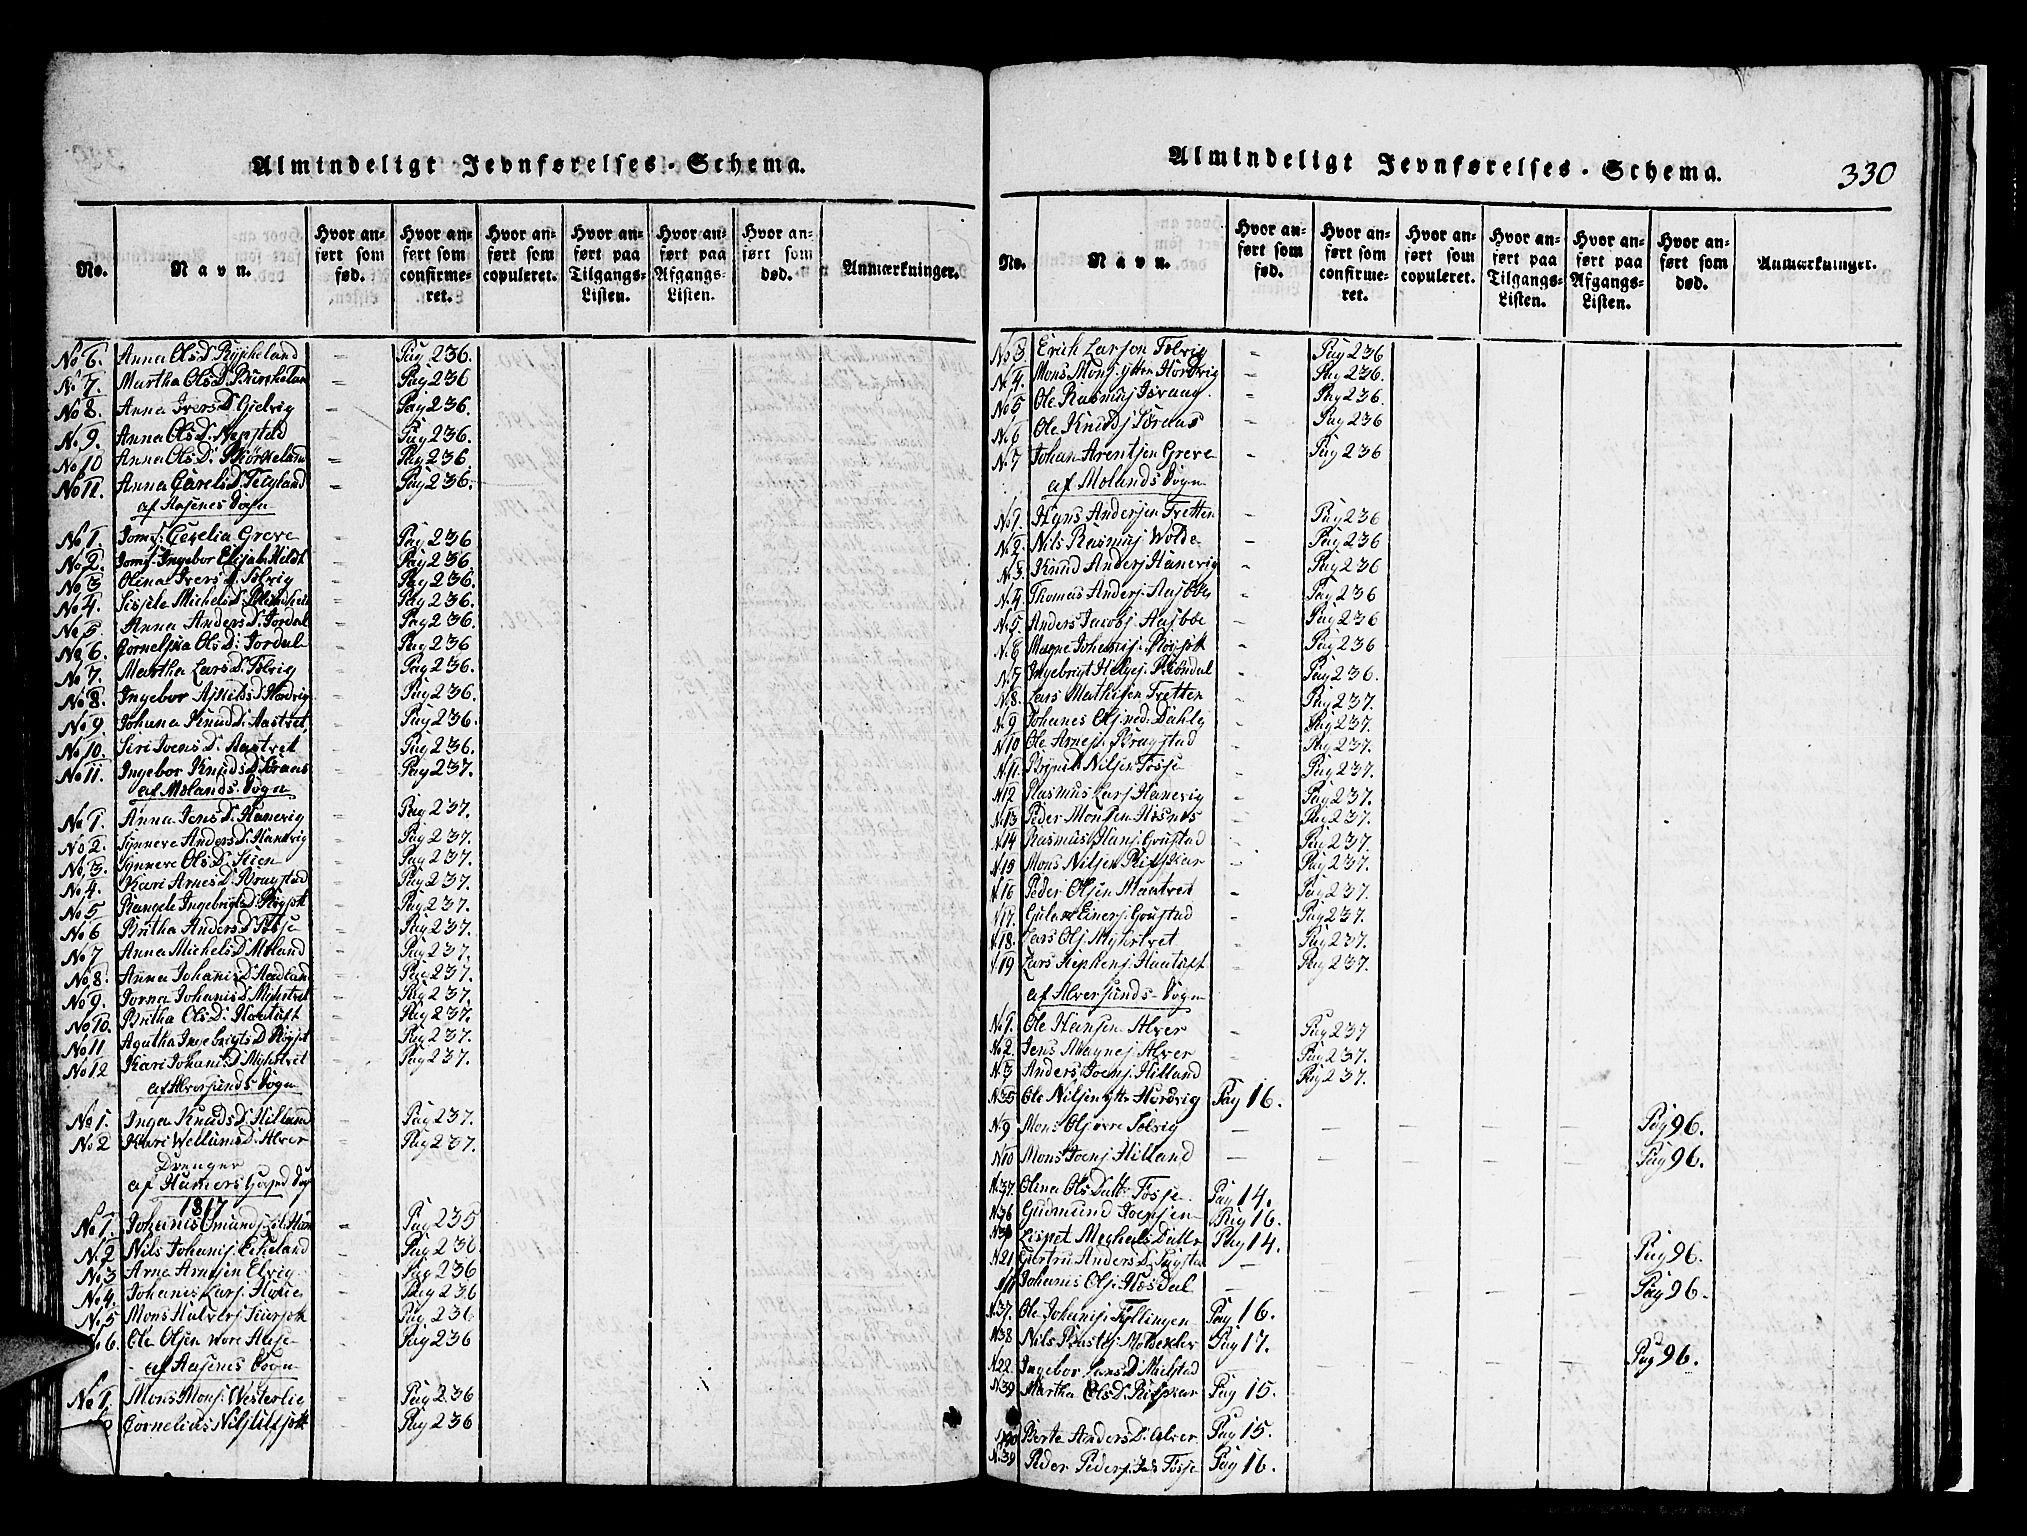 Almindeligt Jevnførelses-Schema.
No. Navn. Hvor anført som fød. Hvor anført som confirmeret. Hvor anført som copuleret. Hvor anført paa Tilgangs-Listen. Hvor anført paa Afgangs-Listen. Hvor anført som død. Anmærkninger.
No 6. Anna Olsd. – Pag 236.
No 7. Martha Olsd. – Pag 236
No 8. Anna Iversd. Gjelvig – Pag 236.
No 9. Anna Olsd. Nepstad – Pag 236.
No 10 Anna Olsd. Biörkeland – Pag 236
No 11. Anna Carelsd. Tegland – Pag 236.
af Aasenes Sogn
No 1. Jomf. Cecelia Greve – Pag 236
No 2. Jomf. Ingebor Elisab. Heldt – Pag 236
No 3 Olena Ivers D. Solvig – Pag 236.
No 4. Sissele Michels D. – Pag 236.
No 5. Anna Anders D. Jordal – Pag 236.
No 6 Cornelska Ols D. Jordal – Pag 236
No 7. Martha Lars D. Solvig – Pag 236.
No 8. Ingebor D. Hordvig – Pag 236.
No 9 Johana Knud D. Aastvet – Pag 236.
No 10. Siri Joens D. Aastvet – Pag 236.
No 11. Ingebor Knuds D. – Pag 237.
af Molands Sogn
No 1. Anna Jens D. Hanevig – Pag 237.
No 2. Synneve Anders D. Hanevig – Pag 237.
No 3. Synneve Ols D. Steen – Pag 237.
No 4. Kari Arnes D. Bragstad – Pag 237.
No 5 Rangele Ingebrigts D. – Pag 237.
No 6 Britha Anders D. Fosse – Pag 237.
No 7 Anna Michels D. Moland – Pag 237.
No 8. Anna Johanis D. Aadland – Pag 237.
No 9. Johanis D. Myhrtvet – Pag 237.
No 10. Britha Ols D. – Pag 237.
No 11 Agatha Ingebrigts D. – Pag 237.
No 12 Kari Johanis D. Myhrtvet – Pag 237.
af Alversunds Sogn
No 1. Inga Knuds D. Hilland Pag 237.
No 2 Kari Wellums D. Alver Pag 237.
Drenge
af Hamers Sogn
1817
No 1. Johanis – Pag 235
No 2 Nils Johanis. Eikeland Pag 236
No 3 Arne Arnesen Elvig – Pag 236
No 4. Johanis Lars. – Pag 236
No 5 Mons Halvors. – Pag 236
No 6. Ole Olsen – Pag 236
af Aasenes Sogn
No 1. Mons Mons. Westerlie – Pag 236
Cornelius Nils. – Pag 236
Almindeligt Jevnførelses-Schema. 330
No. Navn. Hvor anført som fød. Hvor anført som confirmeret. Hvor anført som copuleret. Hvor anført paa Tilgangs-Listen. Hvor anført paa Afgangs-Listen. Hvor anført som død. Anmærkninger.
No 3 Erich Larson Solvig – Pag 236
No 4. Mons Mons. ytter Hordvig – Pag 236.
No 5 Ole Rasmus. – Pag 236.
No 6 Ole Knuds. – Pag 236
No 7 Johan Arentsen Greve – Pag 236
af Molands Sogn
No 1. Hans Andersen Fretten – Pag 236
No 2. Nils Rasmus. Wolde – Pag 236
No 3. Knud Anders. Hanevig – Pag 236
No 4. Thomas Anders. Aasbøe – Pag 236
No 5. Anders Jacobs. Aasbøe – Pag 236
No 6 Magne Johanis. – Pag 236
No 7 Ingebrigt Helges. – Pag 236.
No 8. Lars Mathisen Fretten – Pag 237
No 9 Johanes Ols. ned. Dahle – Pag 237.
No 10 Ole Arnes. Bragstad – Pag 237.
No 11. Nilsen Fosse – Pag 237.
No 12 Rasmus Lars. Hanevig – Pag 237.
No 13 Peder Monsen Hosnes – Pag 237.
No 14 Rasmus Hans. Goustad – Pag 237.
No 15 Mons Nilsen – Pag 237.
No 16 Peder Olsen – Pag 237.
No 17. Einers. Goustad – Pag 237.
No 18. Lars Ols. Myhrtvet – Pag 237.
No 19 Lars – Pag 237.
af Alversunds Sogn
No 1. Ole Hansen Alver – Pag 237
No 2. Jens Magnes. Alver – Pag 237.
No 3 Anders Joens. Hilland Pag 237.
No 35 Ole Nilsen ytter Hordvig Pag 16.
No 9 Mons Solvig – Pag 96.
No 10 Mons Joens. Hilland – Pag 96.
No 37. Olena Ols Datter Fosse Pag 14.
No 36 Gudmund Joensen Pag 16.
Lispet Meghels Datter Pag 14.
No 21 Giertru Anders D. – Pag 96.
Johanis Ols. – Pag 96.
No 37. Ole Johanis. Fyllingen Pag 16.
No 38 Nils Pag 17.
No 22. Ingebor Lars D. Mielstad – Pag 96.
No 39 Martha Ols D. Pag 15.
Berte Anders D. Alver Pag 15.
No 39 Peder Peders. Fosse Pag 16.